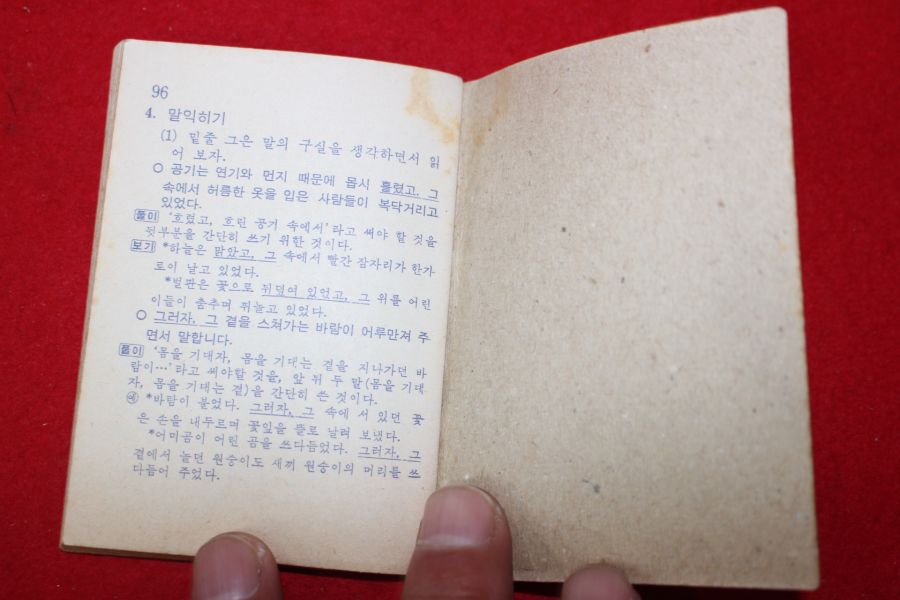 96
4. 말익히기
(1) 밑줄 그은 말의 구실을 생각하면서 읽
어 보자.
○ 공기는 연기와 먼지 때문에 몹시 흘렸고, 그
속에서 허름한 옷을 입은 사람들이 복닥거리고
있었다.
풀이 '흐렸고, 흐린 공기 속에서'라고 써야 할 것을
뒷부분을 간단히 쓰기 위한 것이다.
보기 *하늘은 맑았고, 그 속에서 빨간 잠자리가 한가
로이 날고 있었다.
*벌판은 꽃으로 뒤덮여 있었고, 그 위를 어린
이들이 춤추며 뛰놀고 있었다.
○ 그러자, 그 곁을 스쳐가는 바람이 어루만져 주
면서 말합니다.
풀이 '몸을 기대자, 몸을 기대는 곁을 지나가던 바
람이…'라고 써야할 것을, 앞 뒤 두 말(몸을 기대
자, 몸을 기대는 곁)을 간단히 쓴 것이다.
예 *바람이 불었다. 그러자, 그 속에 서 있던 꽃
은 손을 내두르며 꽃잎을 뜰로 날려 보냈다.
*어미곰이 어린 곰을 쓰다듬었다. 그러자, 그
곁에서 놀던 원숭이도 새끼 원숭이의 머리를 쓰
다듬어 주었다.